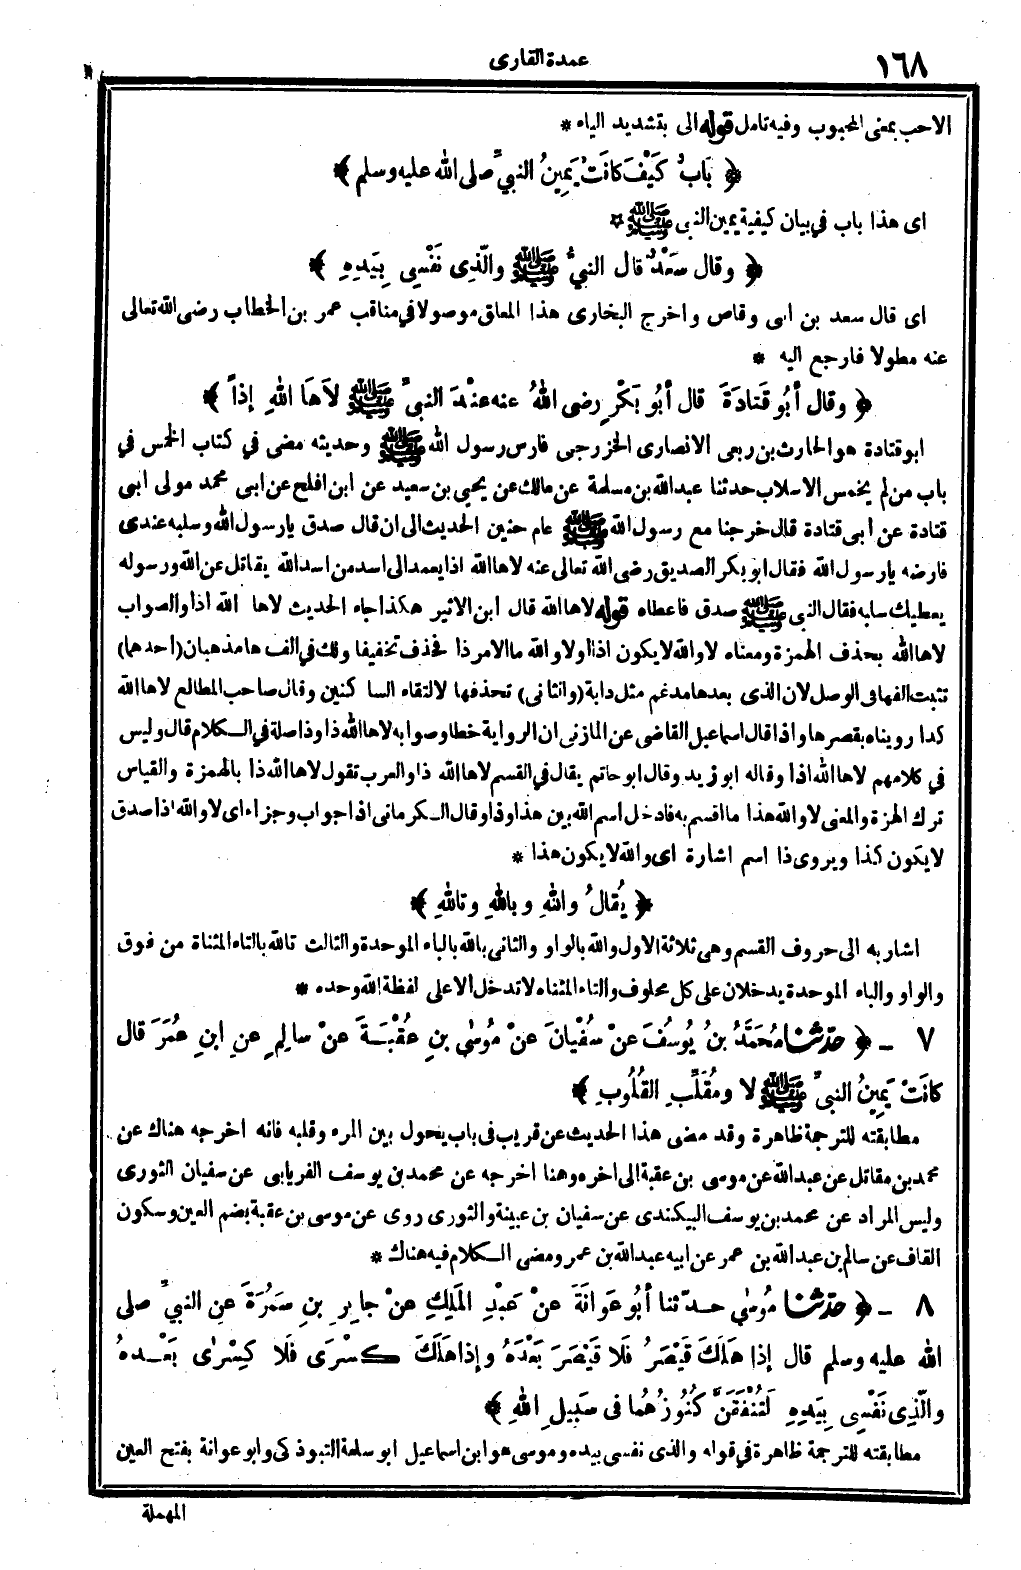 ١٦٨
عمدة القارى
الاحب بمعنى المحبوب وفيه تامل قوله الى بتشديد الياء *
﴿ بَابٌ كَيْفَ كَانَتْ يَمِينُ النبيِّ صلى الله عليه وسلم ﴾
اى هذا باب في بيان كيفية يمين النبى ﷺ *
﴿ وقال سَعْدٌ قال النبيُّ ﷺ والَّذِى نَفْسِى بِيَدِهِ ﴾
اى قال سعد بن ابى وقاص واخرج البخارى هذا المعلق موصولا في مناقب عمر بن الخطاب رضى الله تعالى
عنه مطولا فارجع اليه *
﴿ وقال أبُو قَتَادَةَ قال أبُو بَكْرٍ رضى اللهُ عنه عِنْدَ النبيِّ ﷺ لاَهَا اللهِ إذاً ﴾
ابو قتادة هو الحارث بن ربعى الانصارى الخزرجى فارس رسول الله ﷺ وحديثه مضى في كتاب الخمس في
باب من لم يخمس الاسلاب حدثنا عبدالله بن مسلمة عن مالك عن يحيى بن سعيد عن ابن افلح عن ابى محمد مولى ابى
قتادة عن أبى قتادة قال خرجنا مع رسول الله ﷺ عام حنين الحديث الى ان قال صدق يارسول الله وسلبه عندى
فارضه يارسول الله فقال ابو بكر الصديق رضى الله تعالى عنه لاها الله اذا يعمد الى اسد من اسد الله يقاتل عن الله ورسوله
يعطيك سلبه فقال النبى ﷺ صدق فاعطاه قوله لاها الله قال ابن الاثير هكذا جاء الحديث لاها الله اذا والصواب
لاها الله بحذف الهمزة ومعناه لا والله لايكون اذا أولا والله ما الامر ذا فحذف تخفيفا ولك في الف ها مذهبان (أحدهما)
تثبت الفها فى الوصل لان الذى بعدها مدغم مثل دابة (والثانى) تحذفها لالتقاء الساكنين وقال صاحب المطالع لاها الله
كذا رويناه بقصرها واذا قال اسماعيل القاضى عن المازنى ان الرواية خطا وصوابه لاها الله ذا وذا صلة في الكلام قال وليس
في كلامهم لاها الله اذا وقاله ابو زيد وقال ابو حاتم يقال في القسم لاها الله ذا والعرب تقول لاها الله ذا بالهمزة والقياس
ترك الهمزة والمعنى لا والله هذا ما اقسم به فادخل اسم الله بين هذا وذا وقال الكرمانى اذا جواب وجزاء اى لا والله اذا صدق
لايكون كذا ويروى ذا اسم اشارة اى والله لايكون هذا *
﴿ يُقالُ واللهِ وباللهِ وتاللهِ ﴾
اشار به الى حروف القسم وهى ثلاثة الاول والله بالواو والثانى بالله بالباء الموحدة والثالث تالله بالتاء المثناة من فوق
والواو والباء الموحدة يدخلان على كل محلوف والتاء المثناه لا تدخل الا على لفظة الله وحده *
٧ ـ ﴿ حدّثنا مُحَمَّدُ بنُ يُوسُفَ عنْ سُفْيَانَ عنْ مُوسَى بنِ عُقْبَةَ عنْ سالِمٍ عنِ ابنِ عُمَرَ قال
كانَتْ يَمِينُ النبىِّ ﷺ لا ومُقَلِّبِ القُلُوبِ ﴾
مطابقته للترجمة ظاهرة وقد مضى هذا الحديث عن قريب فى باب يحول بين المرء وقلبه فانه اخرجه هناك عن
محمد بن مقاتل عن عبدالله عن موسى بن عقبة الى اخره وهنا اخرجه عن محمد بن يوسف الفريابى عن سفيان الثورى
وليس المراد عن محمد بن يوسف البيكندى عن سفيان بن عيينة والثورى روى عن موسى بن عقبة بضم العين وسكون
القاف عن سالم بن عبدالله بن عمر عن ابيه عبدالله بن عمر ومضى الكلام فيه هناك *
٨ ـ ﴿ حدّثنا مُوسَى حدّثنا أبُو عَوانَةَ عنْ عَبْدِ المَلِكِ عنْ جابِرِ بنِ سَمُرَةَ عنِ النبىِّ صلى
الله عليه وسلم قال إذا هَلَكَ قَيْصَرُ فَلا قَيْصَرَ بَعْدَهُ وإذا هَلَكَ كسْرَى فَلَا كِسْرَى بَعْدهُ
والَّذِى نَفْسِى بِيَدِهِ لَتُنْفَقَنَّ كُنُوزُهُما فى سَبِيلِ اللهِ ﴾
مطابقته للترجمة ظاهرة في قوله والذى نفسى بيده وموسى هو ابن اسماعيل ابو سلمة التبوذكى وابو عوانة بفتح العين
المهملة